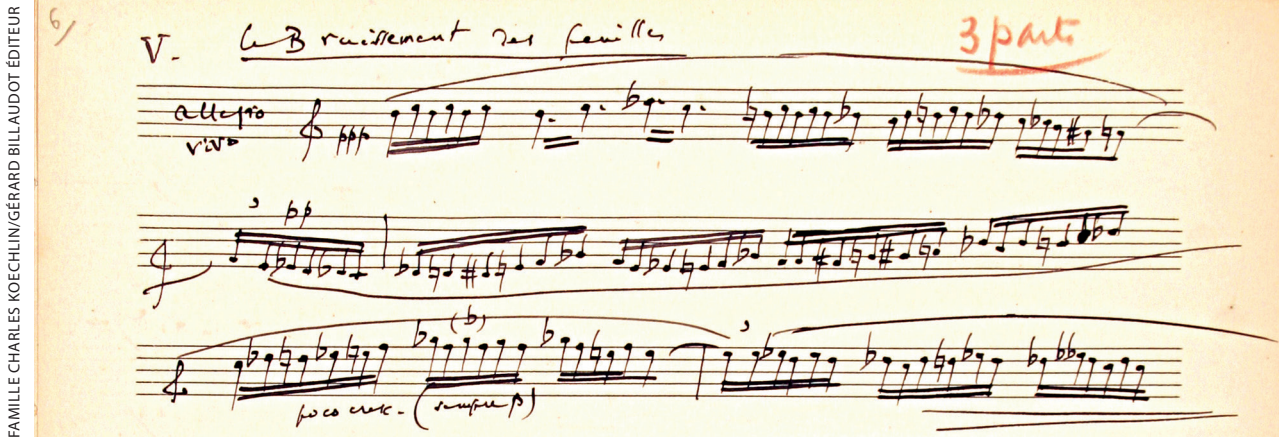 FAMILLE CHARLES KOECHLIN/GÉRARD BILLAUDOT ÉDITEUR
6/
V. Le Bruissement des feuilles
3 parti
allegro
vivo
ppp
pp
poco cresc. (sempre p)